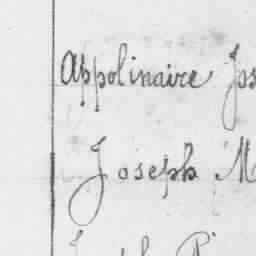 Appolinaire Jos
Joseph M